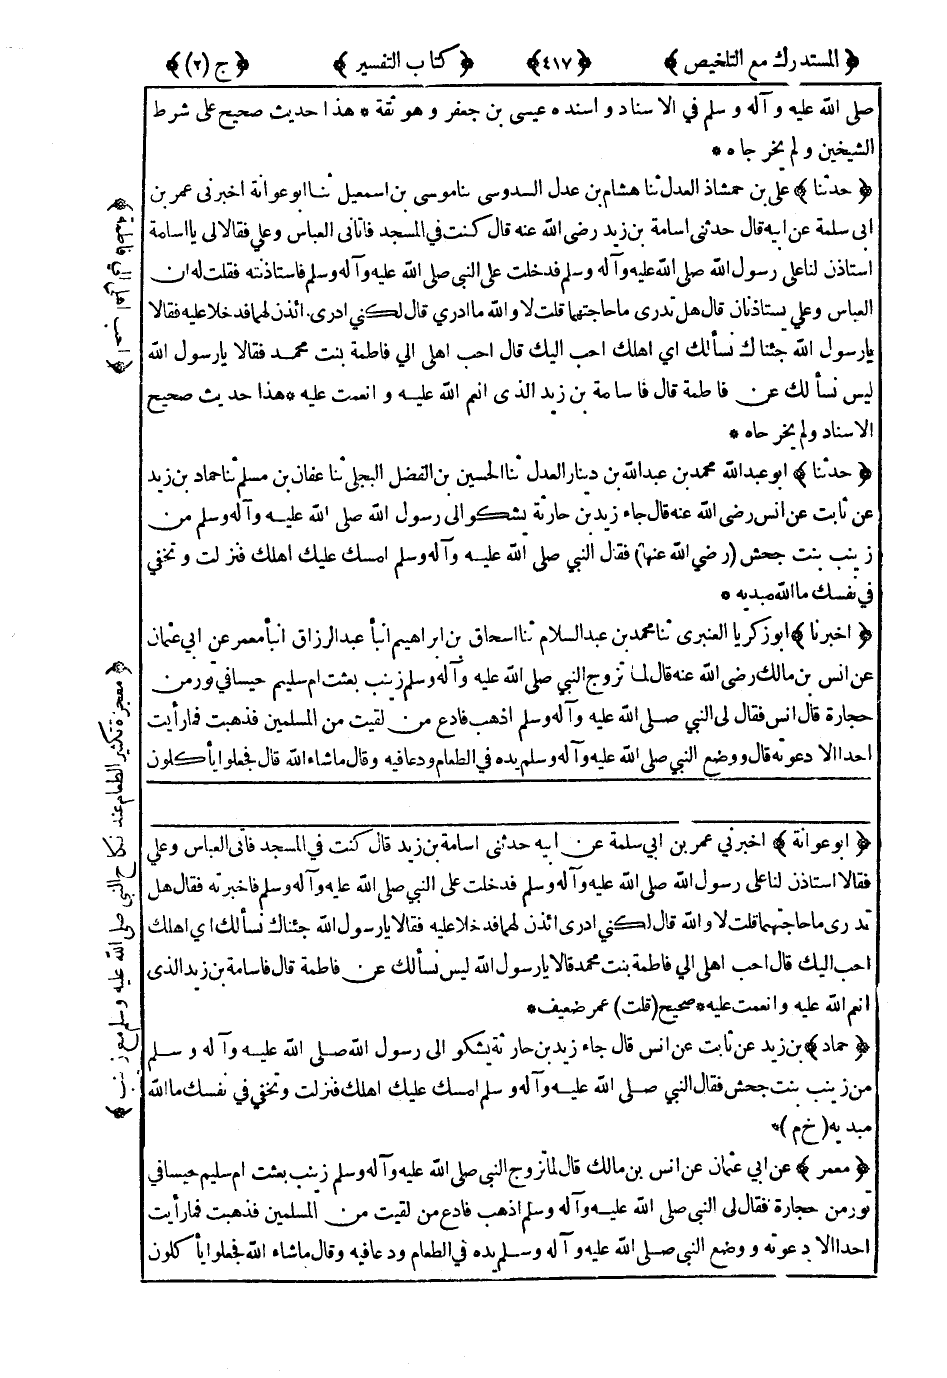 ﴿ المستدرك مع التلخيص ﴾ ﴿ ٤١٧ ﴾ ﴿ كتاب التفسير ﴾ ﴿ ج (٢) ﴾
صلى الله عليه و آله و سلم في الاسناد و اسنده عيسى بن جعفر و هو ثقة * هذا حديث صحيح على شرط
الشيخين و لم يخرجاه *
﴿ حدثنا ﴾ على بن حمشاذ العدل ثنا هشام بن عدل السدوسى ثنا موسى بن اسمعيل ثنا ابو عوانة اخبرنى عمر بن
ابى سلمة عن ابيه قال حدثنى اسامة بن زيد رضى الله عنه قال كنت في المسجد فاتانى العباس و علي فقالا لى يا اسامة
استاذن لنا على رسول الله صلى الله عليه و آله و سلم فدخلت على النبي صلى الله عليه و آله و سلم فاستاذنته فقلت له ان
العباس و علي يستاذنان قال هل تدرى ما حاجتهما قلت لا و الله ما ادري قال لكني ادرى ائذن لهما فدخلا عليه فقالا
يا رسول الله جئناك نسألك اي اهلك احب اليك قال احب اهلي الي فاطمة بنت محمد فقالا يا رسول الله
ليس نسألك عن فاطمة قال فاسامة بن زيد الذى انعم الله عليه و انعمت عليه * هذا حديث صحيح
الاسناد و لم يخرجاه *
﴿ حدثنا ﴾ ابو عبد الله محمد بن عبد الله بن دينار العدل ثنا الحسين بن الفضل البجلي ثنا عفان بن مسلم ثنا حماد بن زيد
عن ثابت عن انس رضى الله عنه قال جاء زيد بن حارثة يشكو الى رسول الله صلى الله عليه و آله و سلم من
زينب بنت جحش (رضي الله عنها) فقال النبي صلى الله عليه و آله و سلم امسك عليك اهلك فنزلت و تخفي
في نفسك ما الله مبديه *
﴿ اخبرنا ﴾ ابو زكريا العنبرى ثنا محمد بن عبد السلام ثنا اسحاق بن ابراهيم انبأ عبد الرزاق انبأ معمر عن ابي عثمان
عن انس بن مالك رضى الله عنه قال لما تزوج النبي صلى الله عليه و آله و سلم زينب بعثت ام سليم حيسا في تور من
حجارة قال انس فقال لى النبي صلى الله عليه و آله و سلم اذهب فادع من لقيت من المسلمين فذهبت فما رأيت
احدا الا دعوته قال و وضع النبي صلى الله عليه و آله و سلم يده في الطعام و دعا فيه و قال ما شاء الله قال فجعلوا يأكلون
﴿ ابو عوانة ﴾ اخبرني عمر بن ابي سلمة عن ابيه حدثنى اسامة بن زيد قال كنت في المسجد فاتى العباس و علي
فقالا استاذن لنا على رسول الله صلى الله عليه و آله و سلم فدخلت على النبي صلى الله عليه و آله و سلم فاخبرته فقال هل
تدرى ما حاجتهما قلت لا و الله قال لكني ادرى ائذن لهما فدخلا عليه فقالا يا رسول الله جئناك نسألك اي اهلك
احب اليك قال احب اهلى الي فاطمة بنت محمد قالا يا رسول الله ليس نسألك عن فاطمة قال فاسامة بن زيد الذى
انعم الله عليه و انعمت عليه * صحيح (قلت) عمر ضعيف *
﴿ حماد ﴾ بن زيد عن ثابت عن انس قال جاء زيد بن حارثة يشكو الى رسول الله صلى الله عليه و آله و سلم
من زينب بنت جحش فقال النبي صلى الله عليه و آله و سلم امسك عليك اهلك فنزلت و تخفي في نفسك ما الله
مبديه (خ م) *
﴿ معمر ﴾ عن ابي عثمان عن انس بن مالك قال لما تزوج النبي صلى الله عليه و آله و سلم زينب بعثت ام سليم حيسا في
تور من حجارة فقال لى النبي صلى الله عليه و آله و سلم اذهب فادع من لقيت من المسلمين فذهبت فما رأيت
احدا الا دعوته و وضع النبى صلى الله عليه و آله و سلم يده في الطعام و دعا فيه و قال ما شاء الله فجعلوا يأكلون
﴿ احب اهلي الي فاطمة ﴾
﴿ معجزة تكثير الطعام عند نكاح النبي صلى الله عليه و سلم مع زينب ﴾